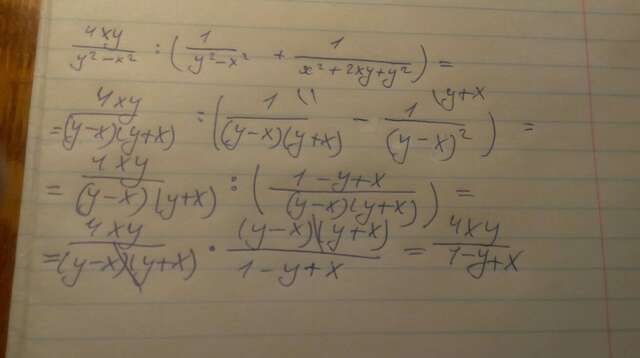 4xy/(y²-x²) : (1/(y²-x²) + 1/(x²+2xy+y²)) =
= 4xy/((y-x)(y+x)) : (1\1/((y-x)(y+x)) - 1\y+x/(y-x)²) =
= 4xy/((y-x)(y+x)) : ((1-y+x)/((y-x)(y+x))) =
= 4xy/((y-x)(y+x)) · ((y-x)(y+x))/(1-y+x) = 4xy/(1-y+x)